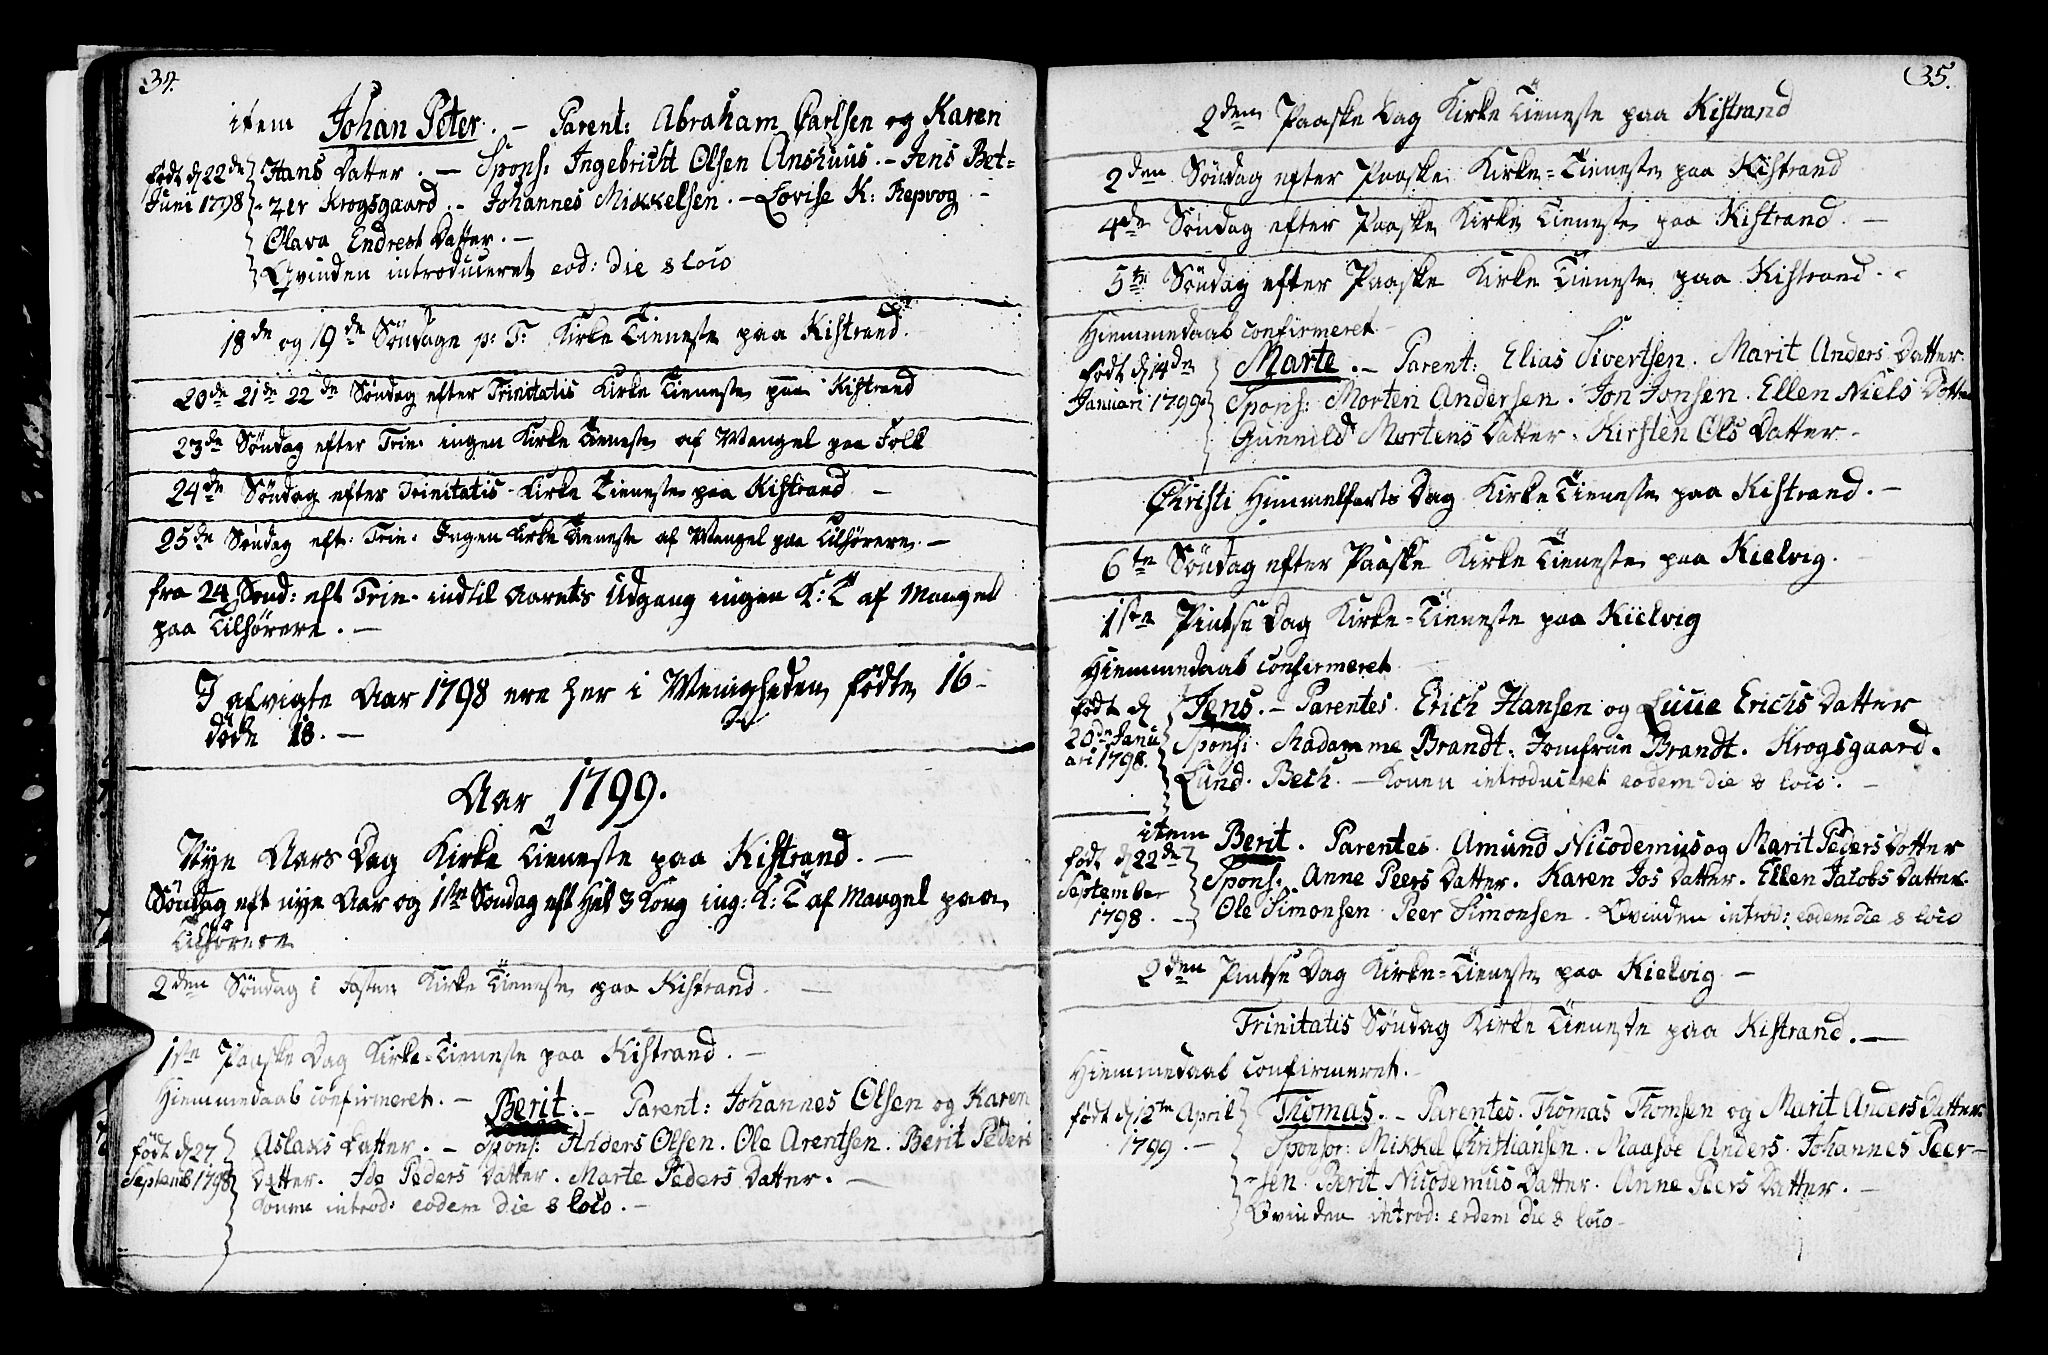 34.
item Johan Peter. – Parent: Abraham Carlsen og Karen
født d 22de Hans Datter. – Spons: Ingebricht Olsen Anshuus. – Jens Bet-
Juni 1798 - zer Krogsgaard. – Johannes Mikkelsen. – Lovise K: Repvog –
Olava Endrest Datter. –
Qvinden introduceret eod: die & loco
18de og 19de Søndage p: T: Kirke Tieneste paa Kistrand
20de 21de 22de Søndag efter Trinitatis Kirke Tieneste paa Kistrand
23de Søndag efter Trin. ingen Kirke Tieneste af Mangel paa Folk
24de Søndag efter Trinitatis Kirke Tieneste paa Kistrand –
25de Søndag eft. Trin. Ingen Kirke Tieneste af Mangel paa Tilhørere. –
fra 24 Sønd: eft Trin. indtil Aarets Udgang ingen K: T af Mangel
paa Tilhørere. –
I afvigte Aar 1798 ere her i Menigheden fødte 16 –
døde 18. –
Aar 1799.
Nye Aars Dag Kirke Tieneste paa Kistrand. –
Søndag eft nye Aar og 1ste Søndag eft Hel 3 Kong ing: K: T af Mangel paa
Tilhørere
2den Søndag i Fasten Kirke Tieneste paa Kistrand. –
1ste Paaske Dag Kirke-Tieneste paa Kistrand. –
Hiemmedaab confirmeret. – Berit. – Parent: Johannes Olsen og Karen
født d 27 Aslaks Datter. – Spons: Anders Olsen. Ole Arentsen. Berit Peders
Septemb 1798 Datter. Ide Peders Datter. Marte Peders Datter. –
Konne introd: eodem die & loco. –
35.
2den Paaske Dag Kirke Tieneste paa Kistrand
2den Søndag efter Paaske Kirke-Tieneste paa Kistrand
4de Søndag efter Paaske Kirke Tieneste paa Kistrand. –
5te Søndag efter Paaske Kirke Tieneste paa Kistrand. –
Hiemmedaab confirmeret
født d 14de Marte. – Parent: Elias Sivertsen. Marit Anders Datter.
Januari 1799 Spons: Morten Andersen. Jon Jonsen. Ellen Niels Datter
Gunnild Mortens Datter. Kirsten Ols Datter –
Christi Himmelfarts Dag Kirke Tieneste paa Kistrand. –
6te Søndag efter Paaske Kirke Tieneste paa Kielvig.
1ste Pintse Dag Kirke-Tieneste paa Kielvig
Hiemmedaab confirmeret
født d Jens. – Parentes. Erich Hansen og Luue Erichs Datter
20de Janu Spons: Madamme Brandt. Jomfrue Brandt. Krogsgaard.
ari 1798. Lund. Bech. – Konen introduceret eodem die & loco. –
item Berit. Parentes. Amund Nicodemius og Marit Peders Datter
født d 22de Spons: Anne Peers Datter. Karen Jos Datter. Ellen Jacobs Datter.
September Ole Simonsen. Peer Simonsen. Qvinden introd: eodem die & loco
1798. –
2den Pintse Dag Kirke-Tieneste paa Kielvig –
Trinitatis Søndag Kirke Tieneste paa Kistrand. –
Hiemmedaab confirmeret. –
født d 12te April Thomas. – Parentes. Thomas Thomsen og Marit Anders Datter
1799. – Sponsor: Mikkel Christiansen. Maasoe Anders. Johannes Peer-
-sen. Berit Nicodemius Datter. Anne Peers Datter. –
Qvinden introd: eodem die & loco –